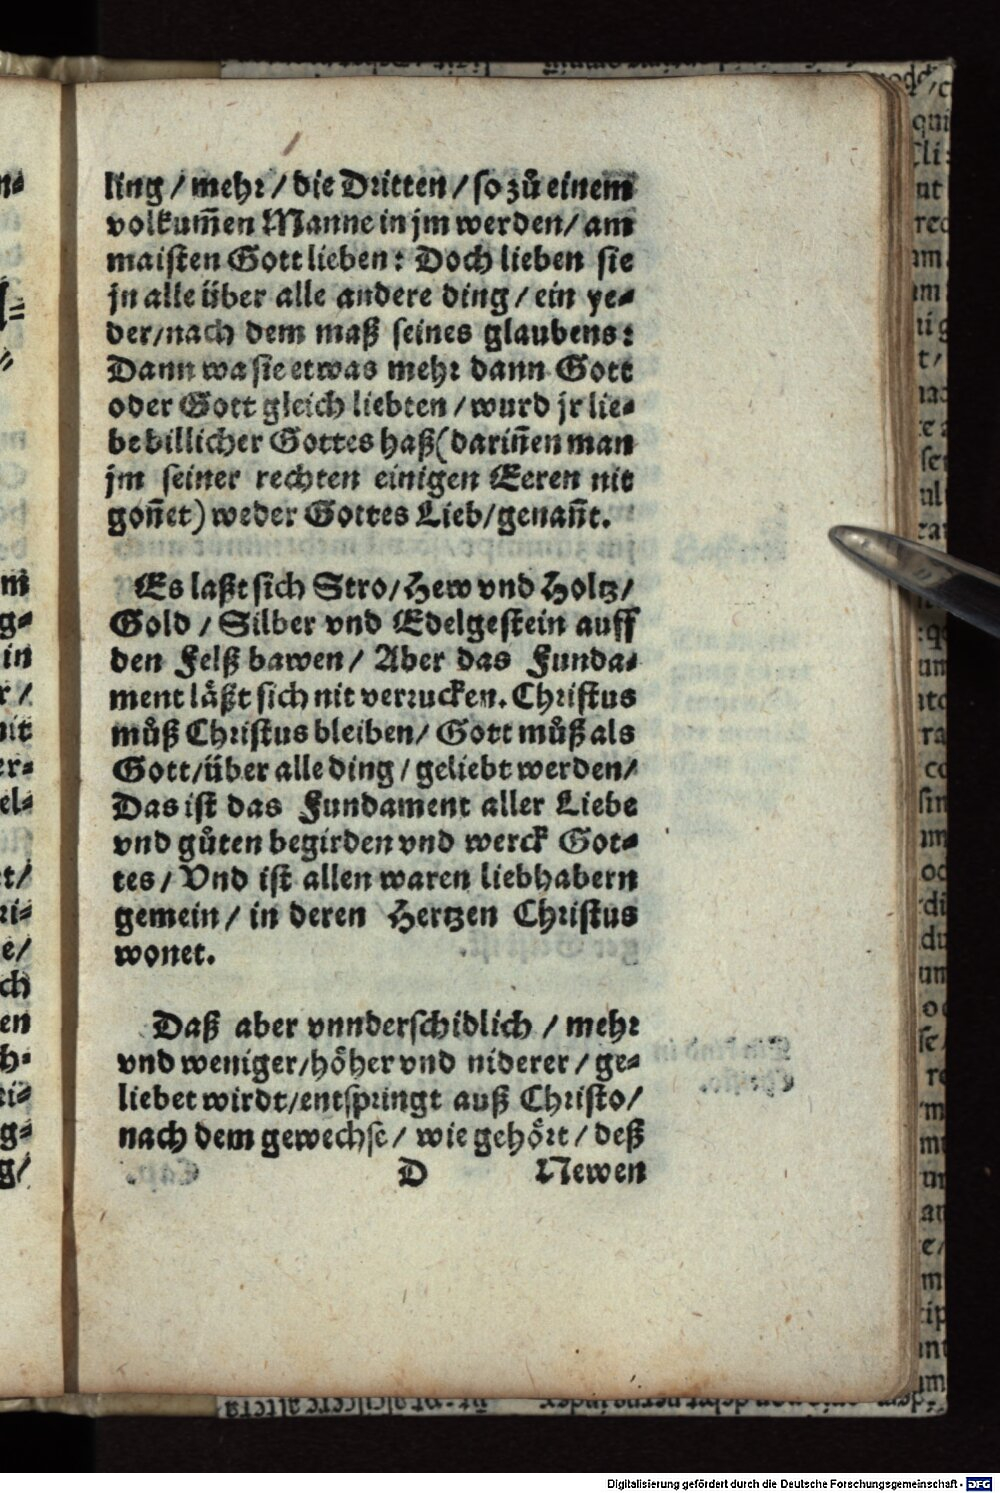 ling / mehr / die Dritten / so zů einem
volkum̃en Manne in jm werden / am
maisten Gott lieben: Doch lieben sie
jn alle über alle andere ding / ein ye=
der / nach dem maß seines glaubens:
Dann wa sie etwas mehr dann Gott
oder Gott gleich liebten / wurd jr lie=
be billicher Gottes haß (dariñen man
jm seiner rechten einigen Eeren nit
goñet) weder Gottes Lieb / genañt.
Es laßt sich Stro / Hew vnd Holtz /
Gold / Silber vnd Edelgestein auff
den Felß bawen / Aber das Funda=
ment läßt sich nit verrucken. Christus
můß Christus bleiben / Gott můß als
Gott / über alle ding / geliebt werden /
Das ist das Fundament aller Liebe
vnd gůten begirden vnd werck Got=
tes / Vnd ist allen waren liebhabern
gemein / in deren Hertzen Christus
wonet.
Daß aber vnnderschidlich / mehr
vnd weniger / höher vnd niderer / ge=
liebet wirdt / entspringt auß Christo /
nach dem gewechse / wie gehört / deß
D Newen
Digitalisierung gefördert durch die Deutsche Forschungsgemeinschaft - DFG